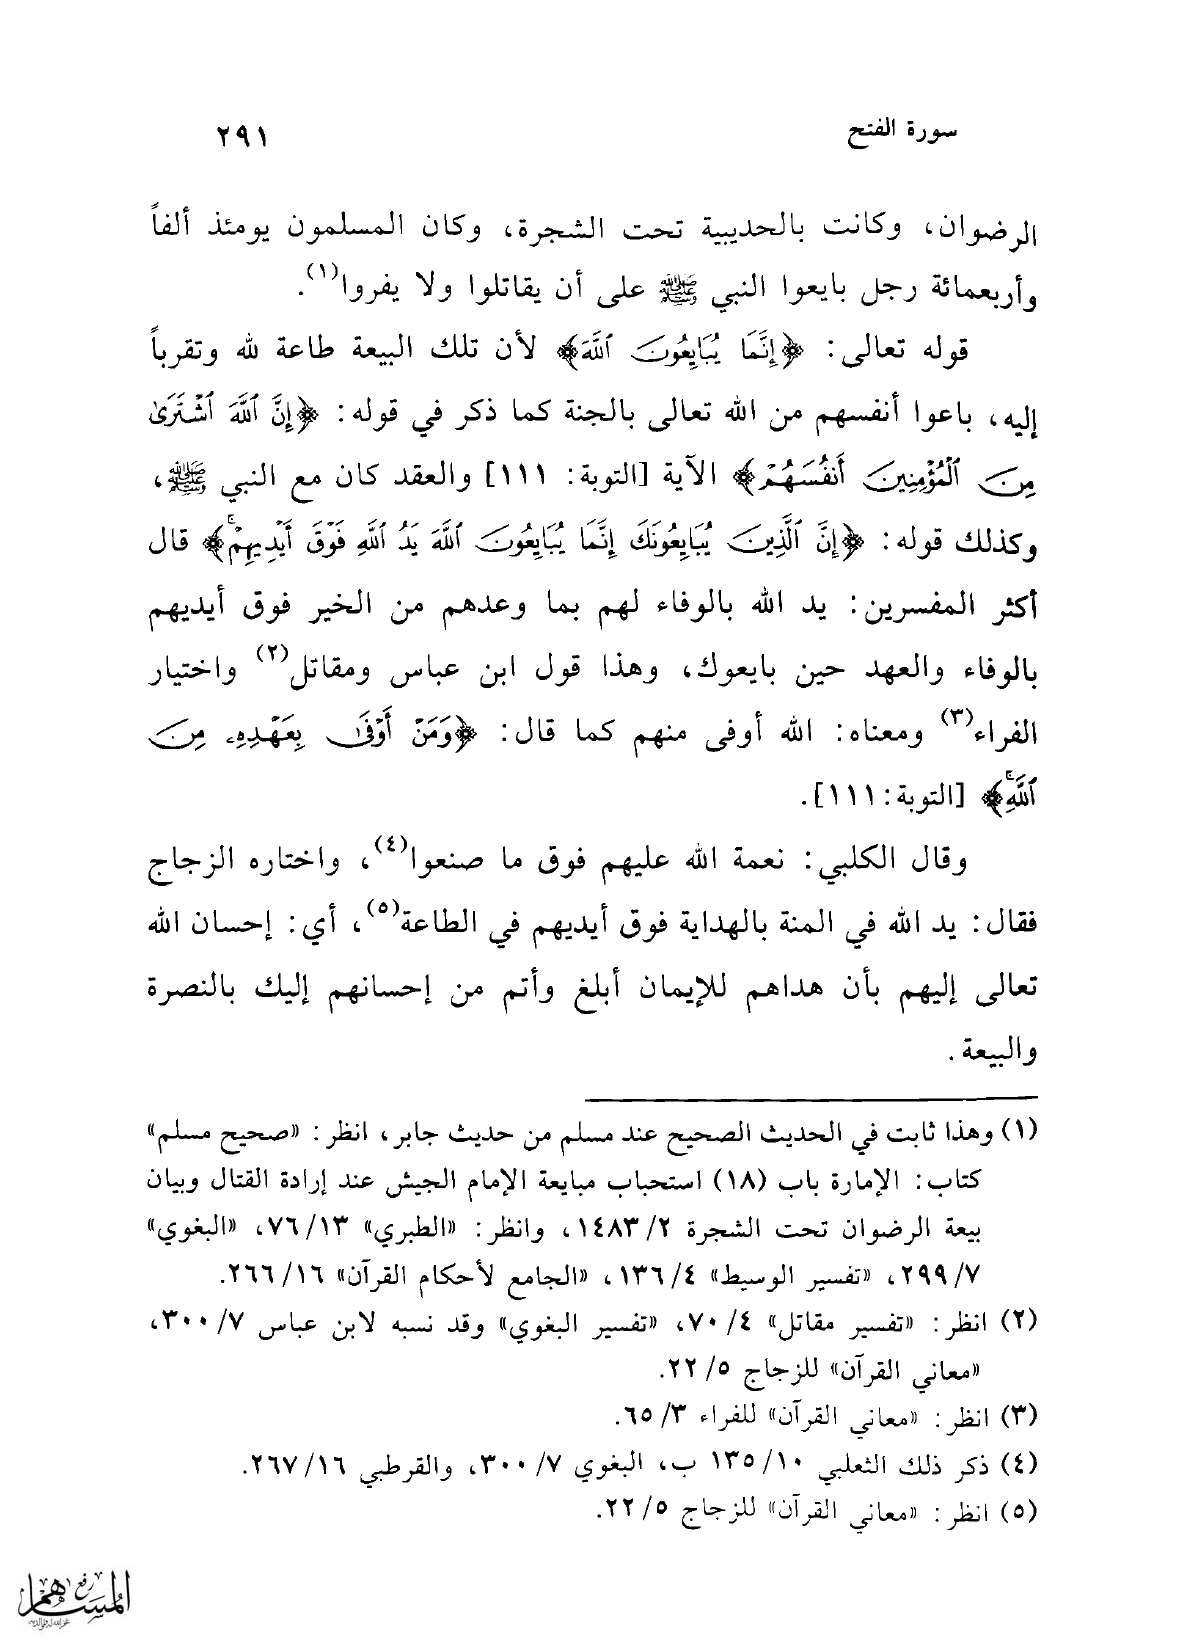 سورة الفتح ٢٩١
الرضوان، وكانت بالحديبية تحت الشجرة، وكان المسلمون يومئذ ألفاً
وأربعمائة رجل بايعوا النبي ﷺ على أن يقاتلوا ولا يفروا(١).
قوله تعالى: ﴿إِنَّمَا يُبَايِعُونَ ٱللَّهَ﴾ لأن تلك البيعة طاعة لله وتقرباً
إليه، باعوا أنفسهم من الله تعالى بالجنة كما ذكر في قوله: ﴿إِنَّ ٱللَّهَ ٱشْتَرَىٰ
مِنَ ٱلْمُؤْمِنِينَ أَنفُسَهُمْ﴾ الآية [التوبة: ١١١] والعقد كان مع النبي ﷺ،
وكذلك قوله: ﴿إِنَّ ٱلَّذِينَ يُبَايِعُونَكَ إِنَّمَا يُبَايِعُونَ ٱللَّهَ يَدُ ٱللَّهِ فَوْقَ أَيْدِيهِمْ ۚ﴾ قال
أكثر المفسرين: يد الله بالوفاء لهم بما وعدهم من الخير فوق أيديهم
بالوفاء والعهد حين بايعوك، وهذا قول ابن عباس ومقاتل(٢) واختيار
الفراء(٣) ومعناه: الله أوفى منهم كما قال: ﴿وَمَنْ أَوْفَىٰ بِعَهْدِهِۦ مِنَ
ٱللَّهِ ۚ﴾ [التوبة: ١١١].
وقال الكلبي: نعمة الله عليهم فوق ما صنعوا(٤)، واختاره الزجاج
فقال: يد الله في المنة بالهداية فوق أيديهم في الطاعة(٥)، أي: إحسان الله
تعالى إليهم بأن هداهم للإيمان أبلغ وأتم من إحسانهم إليك بالنصرة
والبيعة.
(١) وهذا ثابت في الحديث الصحيح عند مسلم من حديث جابر، انظر: «صحيح مسلم»
كتاب: الإمارة باب (١٨) استحباب مبايعة الإمام الجيش عند إرادة القتال وبيان
بيعة الرضوان تحت الشجرة ٢/ ١٤٨٣، وانظر: «الطبري» ١٣/ ٧٦، «البغوي»
٧/ ٢٩٩، «تفسير الوسيط» ٤/ ١٣٦، «الجامع لأحكام القرآن» ١٦/ ٢٦٦.
(٢) انظر: «تفسير مقاتل» ٤/ ٧٠، «تفسير البغوي» وقد نسبه لابن عباس ٧/ ٣٠٠،
«معاني القرآن» للزجاج ٥/ ٢٢.
(٣) انظر: «معاني القرآن» للفراء ٣/ ٦٥.
(٤) ذكر ذلك الثعلبي ١٠/ ١٣٥ ب، البغوي ٧/ ٣٠٠، والقرطبي ١٦/ ٢٦٧.
(٥) انظر: «معاني القرآن» للزجاج ٥/ ٢٢.